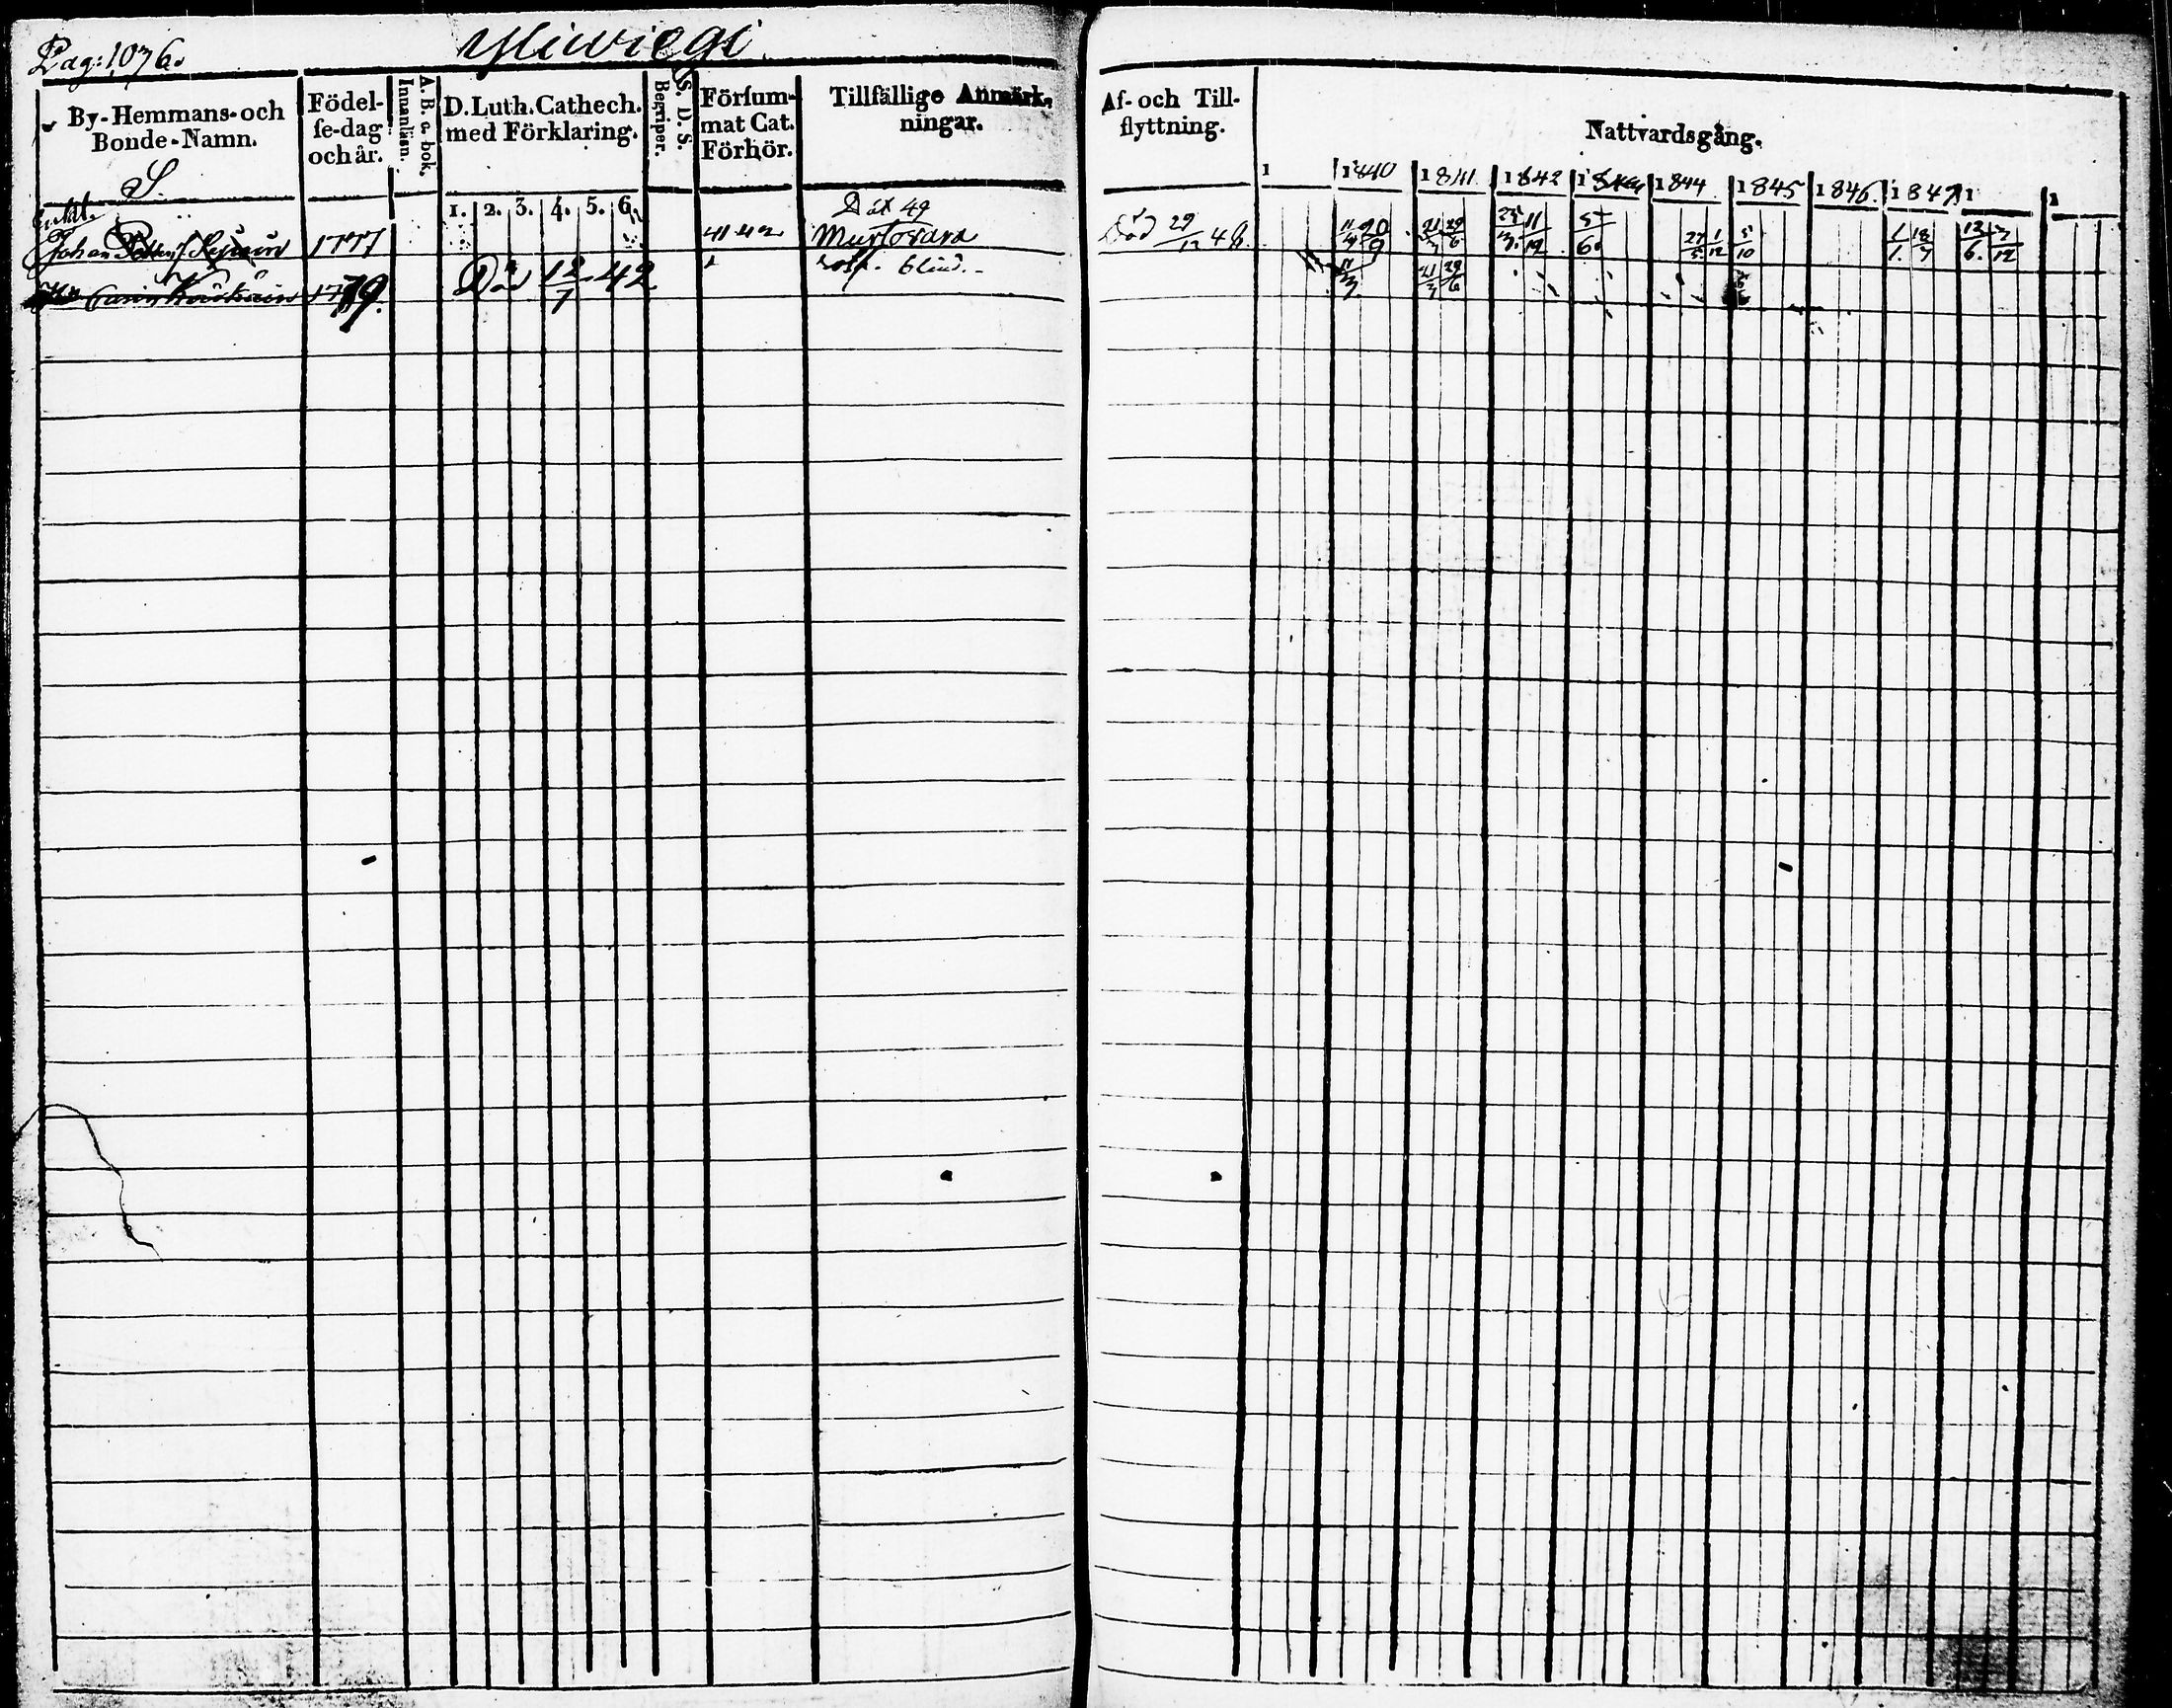 Pag: 1076.
Yliwiegi
By-Hemmans-och Bonde-Namn.
S.
Födel-ſe-dag och år.
A. B. c. bok.
Innanläsn.
D. Luth. Cathech. med Förklaring.
1. 2. 3. 4. 5. 6.
S. D. S.
Begriper.
Förſum-mat Cat. Förhör.
Tillfällige Anmärk-ningar.
Af- och Till-flyttning.
Nattvardsgång.
1 1840 1841 1842 1 1844 1845 1846 1847 1 1
Död 49
Johan 1777 41 42 Murtovara Död 29/12 48. 11/7 20/9 21/7 29/6 11/12 5/6. 27/5 1/12 5/10 1/1. 18/7 13/6. 7/12
Carin 1779. Död 12/7 42 blind. 11/7 21/7 29/6